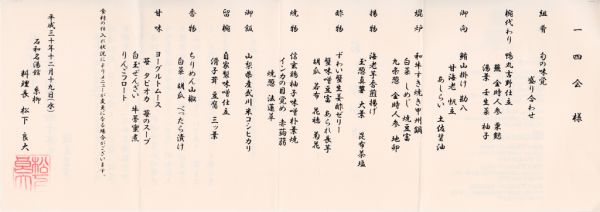 一四会 様
組肴 旬の味覚
盛り合わせ
椀代わり 鴨丸吉野仕立
蕪 金時人参 粟麩
湯葉 壬生菜 柚子
御向 鮪山掛け 勘八
甘海老 帆立
あしらい 土佐醤油
焜炉 和牛すき焼き甲州鍋
白菜 しめじ 焼豆富
九条葱 金時人参 地卵
揚物 海老芋香煎揚げ
玉葱真薯 大葉 昆布茶塩
酢物 ずわい蟹生姜酢ゼリー
蟹味噌豆富 あられ長芋
胡瓜 若布 花穂 菊花
焼物 信玄鶏柚子味噌朴葉焼
インカの目覚め 赤蒟蒻
焼葱 法蓮草
御飯 山梨県産武川米コシヒカリ
留椀 自家製味噌仕立
滑子茸 豆富 三ツ葉
香物 ちりめん山椒
白菜 胡瓜 べったら漬け
甘味 ヨーグルトムース
苺 タピオカ 苺のスープ
白玉ぜんざい 牛蒡蜜煮
りんごフロート
食材の仕入れ状況によりメニューが変更になる場合がございます。
平成三十年十二月十九日(水)
石和名湯館 糸柳
料理長 松下 良大